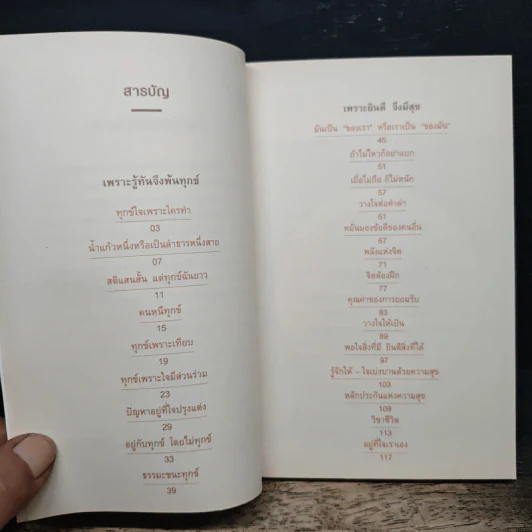 สารบัญ
เพราะรู้ทันจึงพ้นทุกข์
ทุกข์ใจเพราะใครทำ
03
น้ำแก้วหนึ่งหรือเป็นลำธารหนึ่งสาย
07
สติแสนสั้น แต่ทุกข์ฉันยาว
11
คนหนีทุกข์
15
ทุกข์เพราะเทียบ
19
ทุกข์เพราะใจมีส่วนร่วม
23
ปัญหาอยู่ที่ใจปรุงแต่ง
29
อยู่กับทุกข์ โดยไม่ทุกข์
33
ธรรมะชนะทุกข์
39
เพราะยินดี จึงมีสุข
มันเป็น "ของเรา" หรือเราเป็น "ของมัน"
45
ถ้าไม่ไหวก็อย่าแบก
51
เมื่อไม่ถือ ก็ไม่หนัก
57
วางใจต่อคำด่า
61
หมั่นมองข้อดีของคนอื่น
67
พลังแห่งจิต
71
จิตต้องฝึก
77
คุณค่าของการยอมรับ
83
วางใจให้เป็น
89
พอใจสิ่งที่มี ยินดีสิ่งที่ได้
97
รู้จักให้ - ใจเบ่งบานด้วยความสุข
103
หลักประกันแห่งความสุข
109
วิชาชีวิต
113
อยู่ที่ใจเราเอง
117